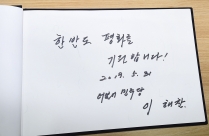 한반도 평화를
기원합니다!
2019. 5. 31
더불어 민주당
이 해 찬